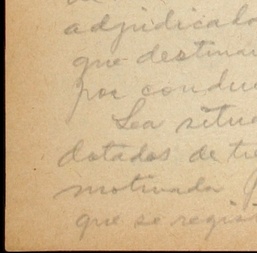 adjudicado
que destina
por condu
Sea situa
dotados de tie
motivada
que se regis